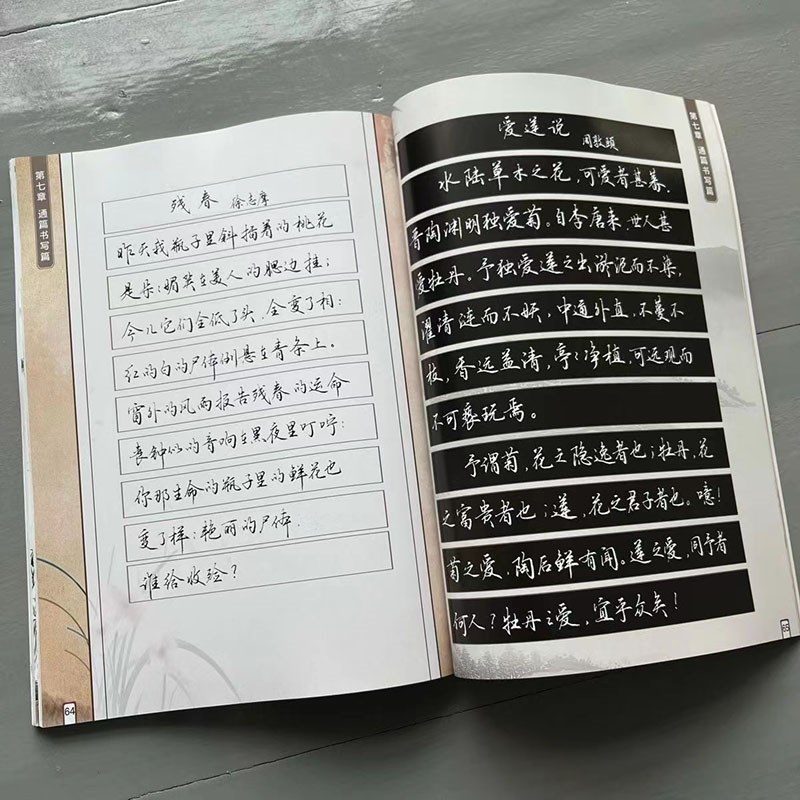 第七章 通篇书写篇
残春 徐志摩
昨天我瓶子里斜插着的桃花
是朵〻媚笑在美人的腮边挂；
今儿它们全低了头，全变了相：
红的白的尸体倒悬在青条上。
窗外的风雨报告残春的运命
丧钟似的音响在黑夜里叮咛：
你那生命的瓶子里的鲜花也
变了样：艳丽的尸体，
谁给收殓？
64
第七章 通篇书写篇
爱莲说 周敦颐
水陆草木之花，可爱者甚蕃，
晋陶渊明独爱菊。自李唐来，世人甚
爱牡丹。予独爱莲之出淤泥而不染，
濯清涟而不妖，中通外直，不蔓不
枝，香远益清，亭〻净植，可远观而
不可亵玩焉。
予谓菊，花之隐逸者也；牡丹，花
之富贵者也；莲，花之君子者也。噫！
菊之爱，陶后鲜有闻。莲之爱，同予者
何人？牡丹之爱，宜乎众矣！
65